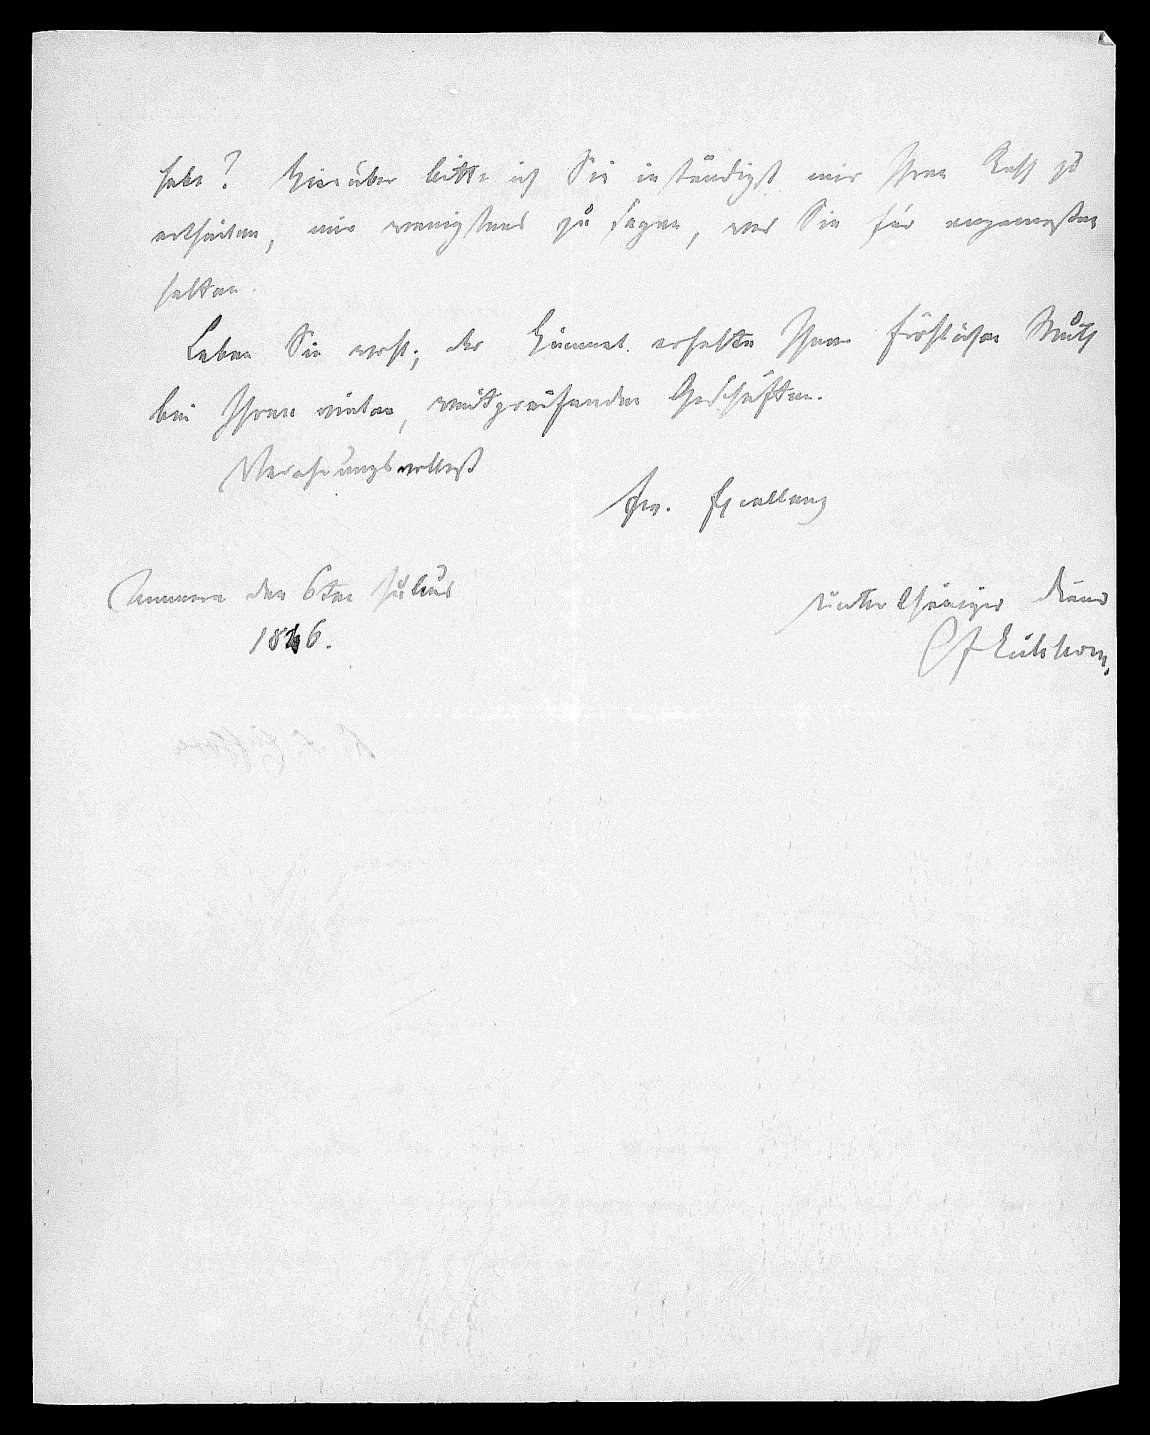 habe? Hierüber bitte ich Sie inständigst mir Ihren Rath zu
ertheilen, mir wenigstens zu sagen, was Sie für angemessen
halten.
Leben Sie wohl; der Himmel erhalte Ihnen fröhlichen Muth
bei Ihren vielen, weitgreifenden Geschäften.
Verehrungsvollest
Ew. Excellenz
den 6ten Julius
1826.
unterthäniger Diener